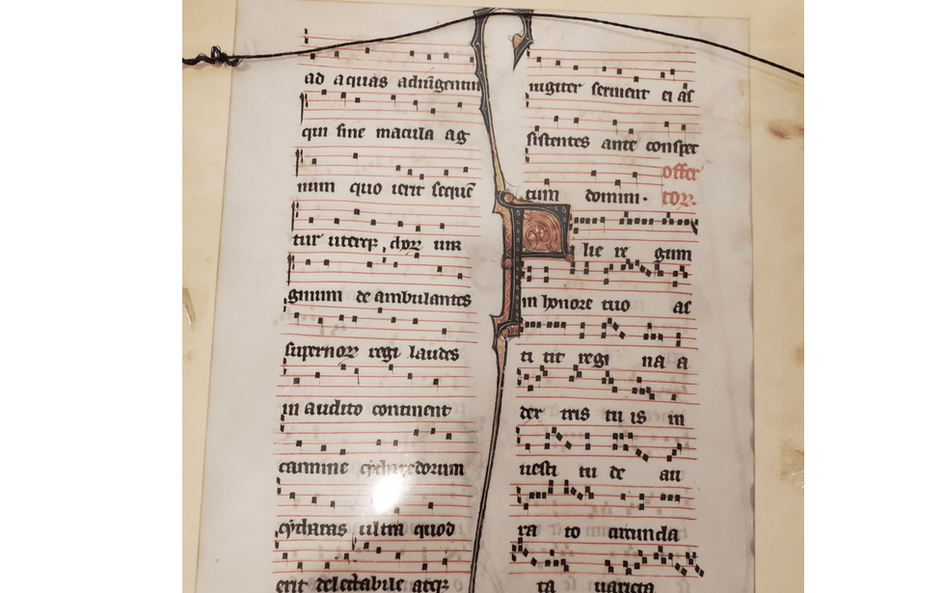 ad aquas adurgentur
qui sine macula ag
num quo ierit sequē
tur uterqꝫ chorꝰ uir
ginum de ambulantes
supernoꝝ regi laudes
in audito continent
carmine cytharedorum
cytharas ultra quod
erit delectabile atqꝫ
iugiter seruient ei as
sistentes ante conspec
offer
tum domini.
toꝝ.
Filie regum
in honore tuo as
ti tit regi na a
dex tris tu is in
uesti tu de au
ra to circunda
ta uarieta